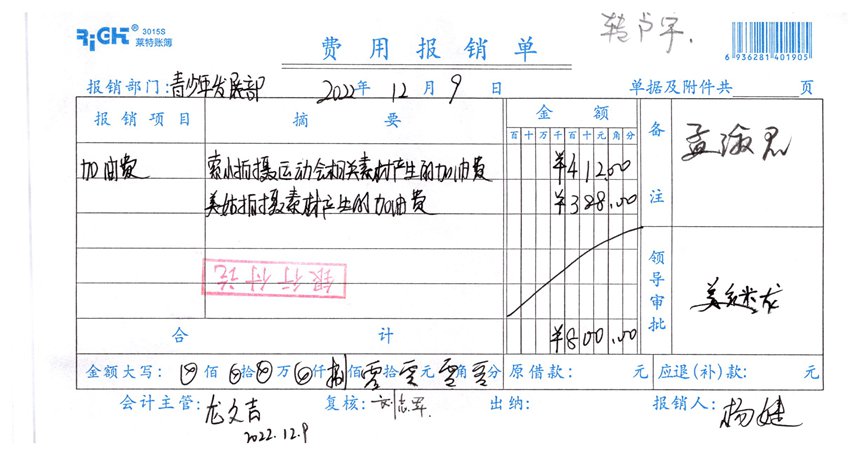 RiGHT® 3015S
莱特账簿
转卢宇.
费用报销单
6 936281 401905
报销部门:青少年发展部 2022年 12月 9日 单据及附件共 页
报销项目 摘要 金额 备注
百十万千百十元角分
加油费 索小拍摄运动会相关素材产生的加油费 ¥412.00
美姑拍摄素材产生的加油费 ¥388.00
银行付讫
领导审批
合计 ¥800.00
金额大写: ⊗佰⊗拾⊗万⊗仟捌佰零拾零元零角零分 原借款: 元 应退(补)款: 元
会计主管:龙文吉 复核: 出纳: 报销人:杨婕
2022.12.9